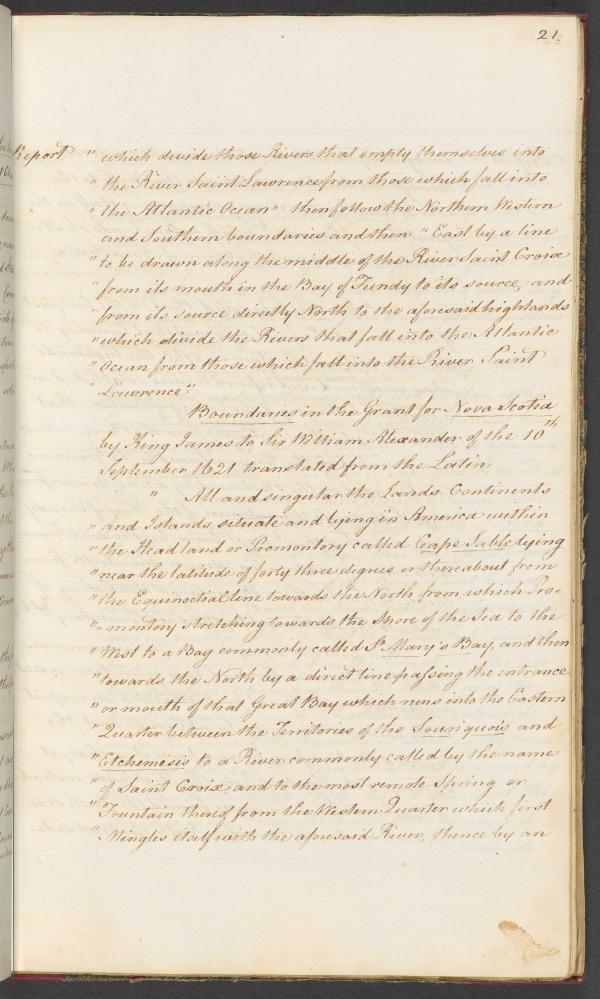 21.
Report
" which divide those Rivers that empty themselves into
" the River Saint Lawrence from those which fall into
" the Atlantic Ocean" then follow the Northern Western
and Southern boundaries and then " East by a line
" to be drawn along the middle of the River Saint Croix
" from its mouth in the Bay of Fundy to its source, and
" from its source directly North to the aforesaid highlands
" which divide the Rivers that fall into the Atlantic
" Ocean from those which fall into the River Saint
" Lawrence"
Boundaries in the Grant for Nova Scotia
by King James to Sir William Alexander of the 10th
September 1621 translated from the Latin
" All and singular the Lands Continents
" and Islands situate and lying in America within
" the Head land or Promontory called Cape Sable lying
" near the latitude of forty three degrees or thereabout from
" the Equinoctial line towards the North from which Pro-
" -montory stretching towards the Shore of the Sea to the
" West to a Bay commonly called St Mary's Bay, and then
" towards the North by a direct line passing the entrance
" or mouth of that Great Bay which runs into the Eastern
" Quarter between the Territories of the Souriquois and
" Etchemesis to a River commonly called by the name
" of Saint Croix, and to the most remote Spring or
" Fountain thereof from the Western Quarter which first
" Mingles itself with the aforesaid River, thence by an